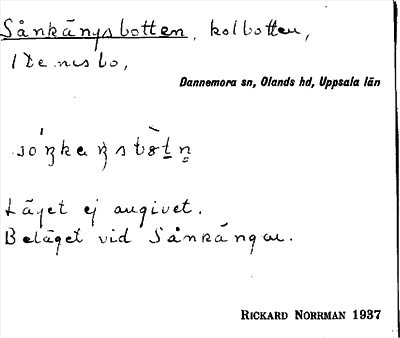 Sånkängsbotten, kolbotten,
Dannemora sn, Olands hd, Uppsala län
Läget ej angivet.
Beläget vid Sånkängar.
RICKARD NORRMAN 1937